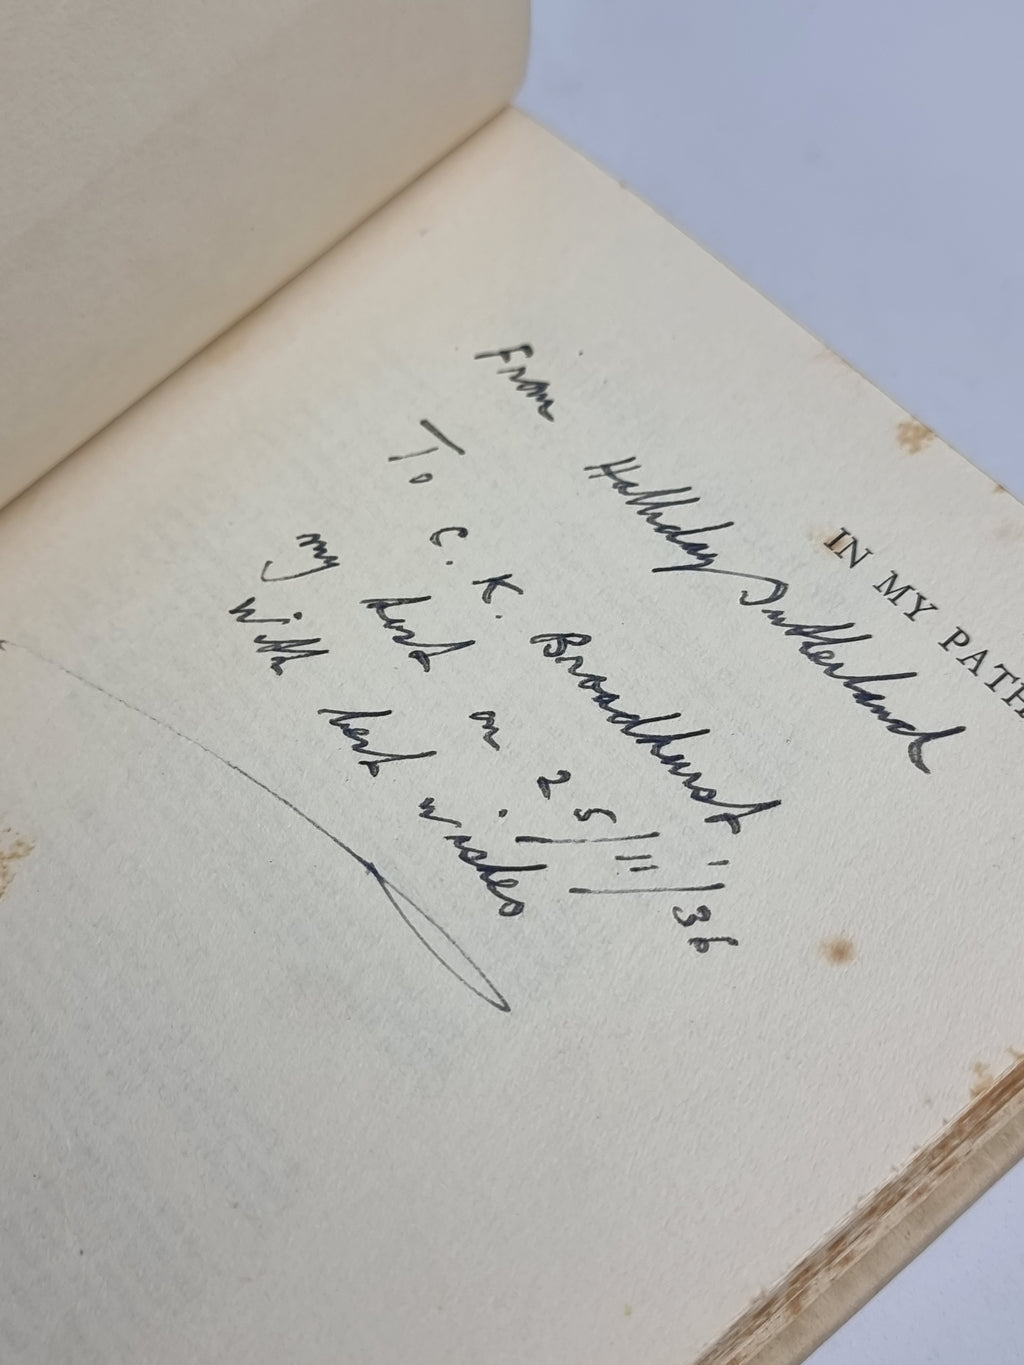 IN MY PATH
From
Halliday Sutherland
To C. K. Broadhurst,
my host on 25/11/36
with best wishes.